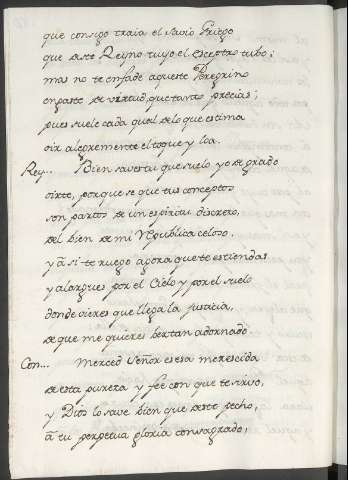 que consigo traia el savio Griego
que deste Reyno tuyo el esceptro tubo;
mas no te enfade aqueste Peregrino
enparte de virtud, que tanto precias;
pues suele cada qual de lo que estima
oir alegremente el toque y loa.
Rey... Bien saves tu que suelo yo de grado
oirte, porque se que tus conceptos
son partos de un espiritu discreto,
del bien de mi Republica celoso.
y asi te ruego agora que te estiendas
y alargues por el Cielo y por el suelo
donde vieres que llega la justicia,
de que me quieres ber tan adornado
Con... Merced Señor es esa merescida
de esta pureza y fee con que te sirvo,
y Dios lo save bien que deste pecho,
a tu perpetua gloria consagrado,